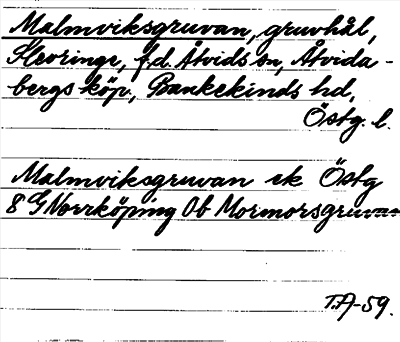 Malmviksgruvan, gruvhål,
Slevringe, f.d. Åtvids sn, Åtvida-
bergs köp., Bankekinds hd,
Östg. l.
Malmviksgruvan ek Östg
8 G Norrköping Ob Mormorsgruvan
T.A-59.